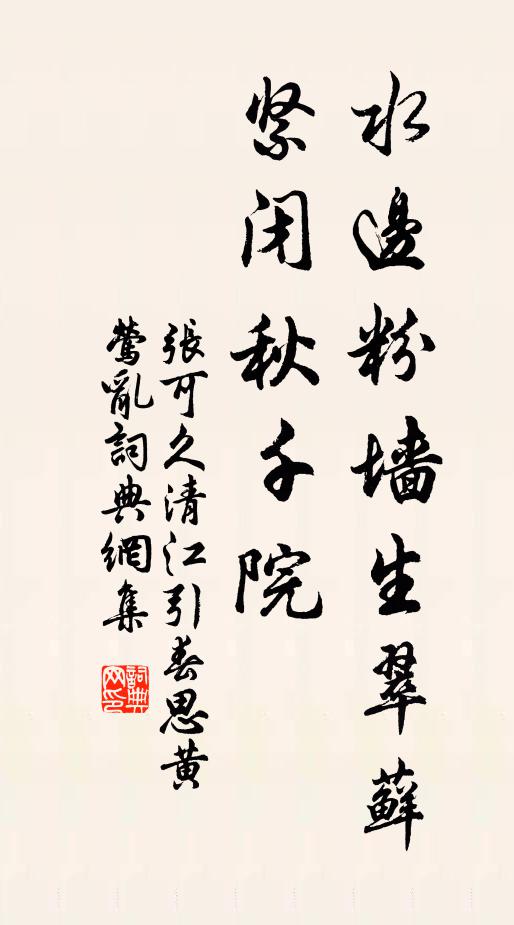 水邊粉墙生翠蘚
紧闭秋千院
張可久清江引春思黄
鶯亂詞典網集
詞典
网印